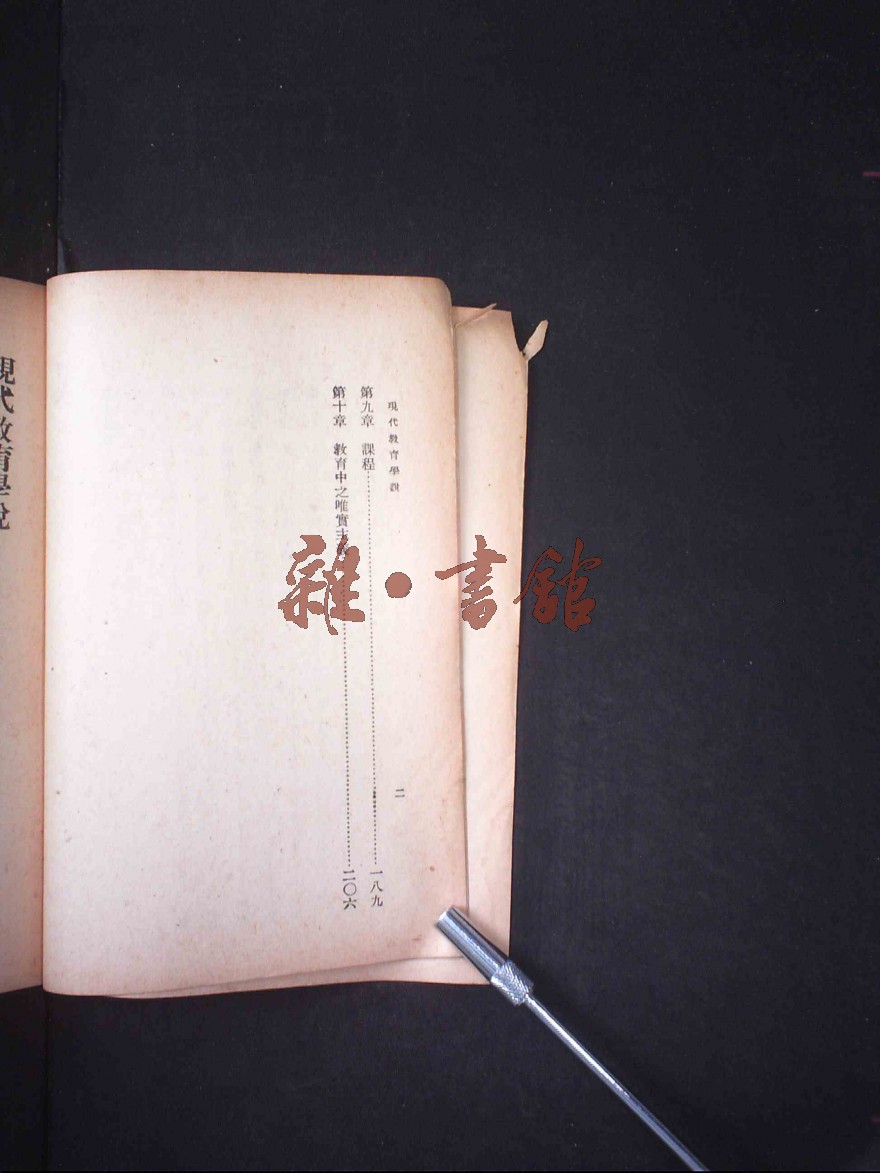 現代教育學說
二
第九章 課程……一八九
第十章 教育中之唯實主義……二〇六
現代教育學說
雜·書館